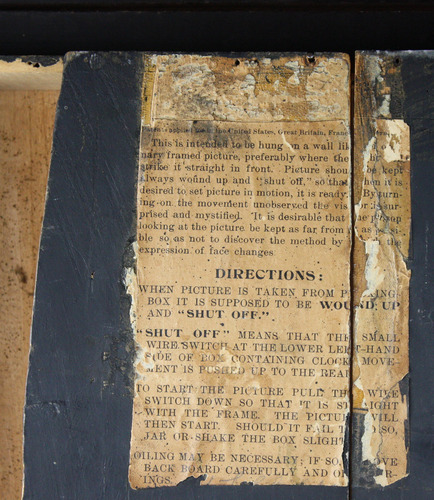 Patents applied for in the United States, Great Britain, France
This is intended to be hung on a wall li
nary framed picture, preferably where the he
strike it straight in front. Picture should be kept
always wound up and "shut off," so that hen it is
desired to set picture in motion, it is ready. By turn
ing on the movement unobserved the vis or is sur-
prised and mystified. It is desirable that the p
looking at the picture be kept as far from i as si-
ble so as not to discover the method by the
expression of face changes
DIRECTIONS:
WHEN PICTURE IS TAKEN FROM P KING
BOX IT IS SUPPOSED TO BE WOUND UP
AND "SHUT OFF."
"SHUT OFF" MEANS THAT THE SMALL
WIRE SWITCH AT THE LOWER LEFT-HAND
SIDE OF BOX CONTAINING CLOCK MOVE-
MENT IS PUSHED UP TO THE REAR
TO START THE PICTURE PULL THE WIRE
SWITCH DOWN SO THAT IT IS ST IGHT
WITH THE FRAME. THE PICTURE WILL
THEN START. SHOULD IT FAIL T SO,
JAR OR SHAKE THE BOX SLIGHT
OILING MAY BE NECESSARY; IF SO OVE
BACK BOARD CAREFULLY AND O R-
INGS.